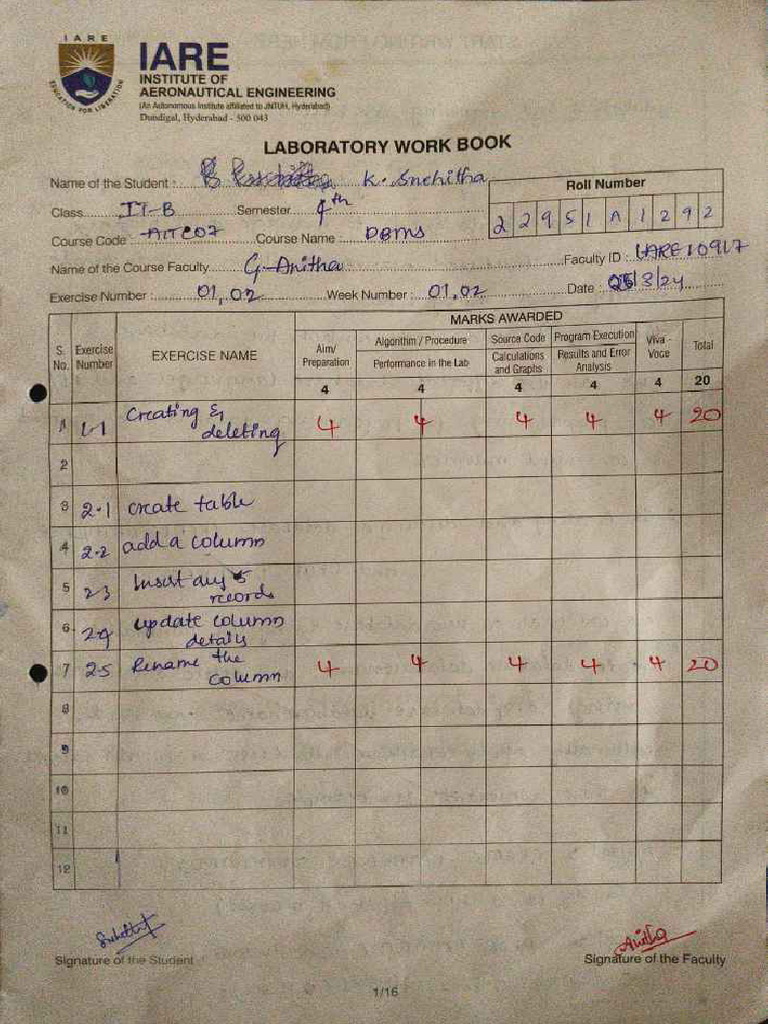 IARE
EDUCATION FOR LIBERATION
IARE
INSTITUTE OF
AERONAUTICAL ENGINEERING
(An Autonomous Institute affiliated to JNTUH, Hyderabad)
Dundigal, Hyderabad - 500 043
LABORATORY WORK BOOK
Name of the Student : K. Snehitha
Roll Number
22951A1292
Class IT-B Semester 4th
Course Code AITC07 Course Name DBMS
Name of the Course Faculty G. Anitha Faculty ID : IARE10917
Exercise Number : 01, 02 Week Number : 01, 02 Date : /3/24
S. No. Exercise Number EXERCISE NAME MARKS AWARDED
Aim/ Preparation Algorithm / Procedure Source Code Program Execution Viva - Voce Total
Performance in the Lab Calculations and Graphs Results and Error Analysis
4 4 4 4 4 20
1 1.1 Creating & deleting 4 4 4 4 4 20
2
3 2.1 create table
4 2.2 add a column
5 2.3 Insert any 5 records
6 2.4 update column details
7 2.5 Rename the column 4 4 4 4 4 20
8
9
10
11
12
Anitha
Signature of the Student Signature of the Faculty
1/16